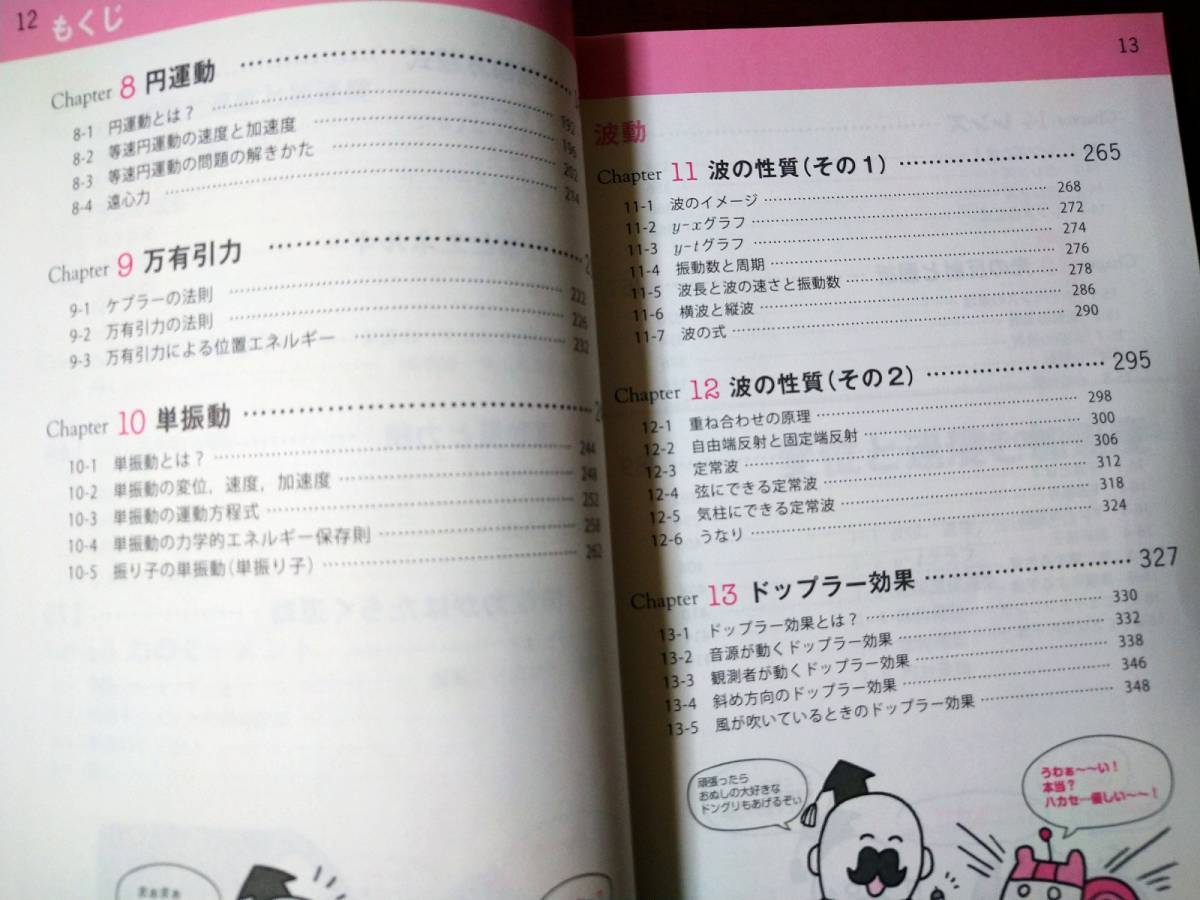 12 もくじ
Chapter 8 円運動
8-1 円運動とは? 192
8-2 等速円運動の速度と加速度 196
8-3 等速円運動の問題の解きかた 202
8-4 遠心力 214
Chapter 9 万有引力
9-1 ケプラーの法則 222
9-2 万有引力の法則 226
9-3 万有引力による位置エネルギー 232
Chapter 10 単振動
10-1 単振動とは? 244
10-2 単振動の変位,速度,加速度 248
10-3 単振動の運動方程式 252
10-4 単振動の力学的エネルギー保存則 258
10-5 振り子の単振動(単振り子) 262
まぁまぁ
13
波動
Chapter 11 波の性質(その1) 265
11-1 波のイメージ 268
11-2 y-xグラフ 272
11-3 y-tグラフ 274
11-4 振動数と周期 276
11-5 波長と波の速さと振動数 278
11-6 横波と縦波 286
11-7 波の式 290
Chapter 12 波の性質(その2) 295
12-1 重ね合わせの原理 298
12-2 自由端反射と固定端反射 300
12-3 定常波 306
12-4 弦にできる定常波 312
12-5 気柱にできる定常波 318
12-6 うなり 324
Chapter 13 ドップラー効果 327
13-1 ドップラー効果とは? 330
13-2 音源が動くドップラー効果 332
13-3 観測者が動くドップラー効果 338
13-4 斜め方向のドップラー効果 346
13-5 風が吹いているときのドップラー効果 348
頑張ったら
おぬしの大好きな
ドングリもあげるぞぃ
うわぁ〜〜い!
本当?
ハカセ…優しい〜〜!